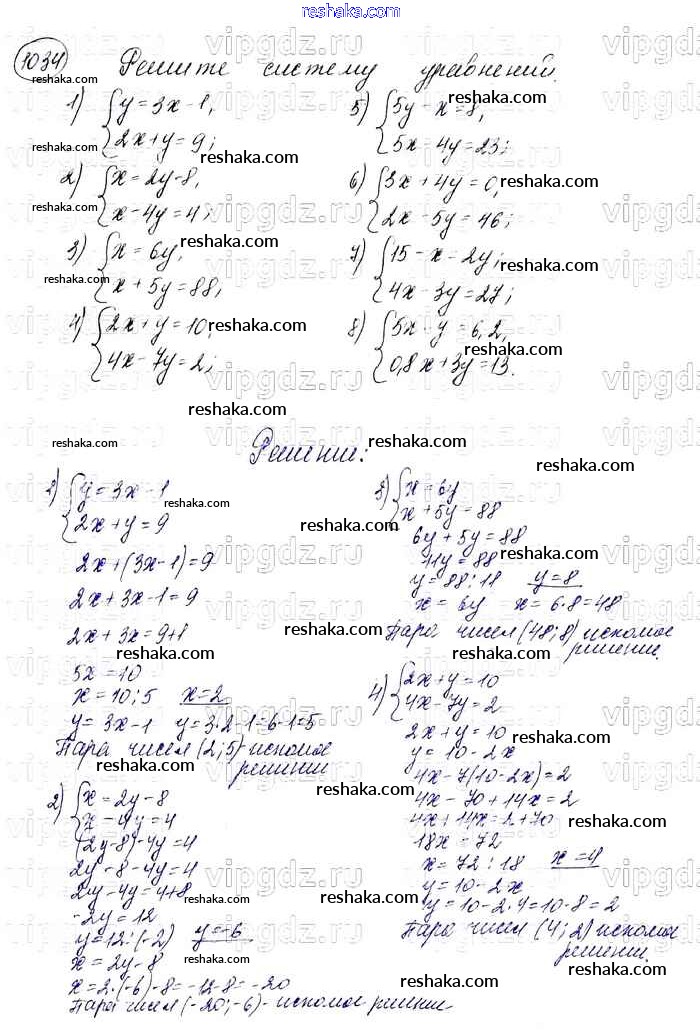 reshaka.com
1034 Решите систему уравнений.
1) { y = 3x - 1,
2x + y = 9;
2) { x = 2y - 8,
x - 4y = 4;
3) { x = 6y,
x + 5y = 88,
4) { 2x + y = 10,
4x - 7y = 2;
5) { 5y - x = 8,
5x - 4y = 23;
6) { 3x + 4y = 0,
2x - 5y = 46;
7) { 15 - x = 2y;
4x - 3y = 27;
8) { 5x - y = 6,2,
0,8x + 3y = 13.
Решение:
1) { y = 3x - 1
2x + y = 9
2x + (3x - 1) = 9
2x + 3x - 1 = 9
2x + 3x = 9 + 1
5x = 10
x = 10 : 5 x = 2
y = 3x - 1 y = 3·2 - 1 = 6 - 1 = 5
Пара чисел (2; 5) - искомое
решении
2) { x = 2y - 8
x - 4y = 4
(2y - 8) - 4y = 4
2y - 8 - 4y = 4
2y - 4y = 4 + 8
-2y = 12
y = 12 : (-2) y = -6
x = 2y - 8
x = 2·(-6) - 8 = -12 - 8 = -20
Пара чисел (-20; -6) - искомое решении
3) { x = 6y
x + 5y = 88
6y + 5y = 88
11y = 88
y = 88 : 11 y = 8
x = 6y x = 6·8 = 48
Пара чисел (48; 8) искомое
решении.
4) { 2x + y = 10
4x - 7y = 2
2x + y = 10
y = 10 - 2x
4x - 7(10 - 2x) = 2
4x - 70 + 14x = 2
4x + 14x = 2 + 70
18x = 72
x = 72 : 18 x = 4
y = 10 - 2x
y = 10 - 2·4 = 10 - 8 = 2
Пара чисел (4; 2) искомое
решении.
vipgdz.ru
reshaka.com